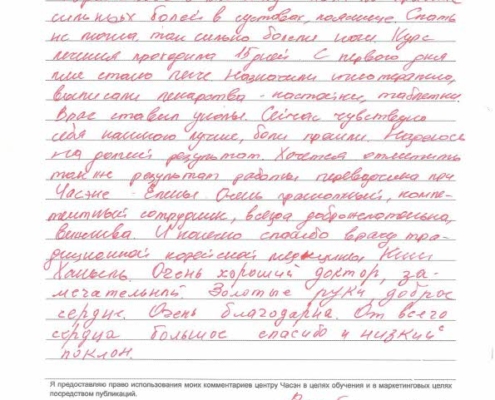 сильных болей в суставах, пояснице. Спать
не могла, так сильно болели ноги. Курс
лечения проходила 15 дней. С первого дня
мне стало легче. Назначили иглотерапию,
выписали лекарства - настойки, таблетки.
Врач ставил уколы. Сейчас чувствую
себя намного лучше, боли прошли. Надеюсь
на долгий результат. Хочется отметить
так же результат работы переводчика при
Часэн - Елены. Очень грамотный, компе-
тентный сотрудник, всегда доброжелательна,
вежлива. И конечно спасибо врачу тра-
диционной корейской медицины Ким
Хоньель. Очень хороший доктор, за-
мечательный. Золотые руки, доброе
сердце. Очень благодарна. От всего
сердца большое спасибо и низкий
поклон.
Я предоставляю право использования моих комментариев центру Часэн в целях обучения и в маркетинговых целях
посредством публикаций.